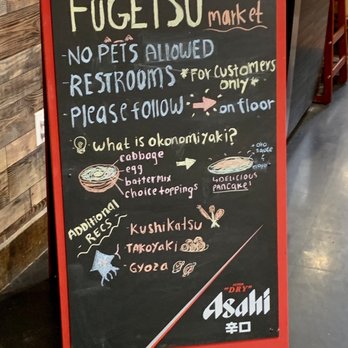 FUGETSU
market
- NO PETS ALLOWED
- RESTROOMS *For Customers only*
- Please follow → on floor
What is okonomiyaki?
cabbage
egg
batter mix
choice toppings
+oko sauce & mayo
DELICIOUS PANCAKE!
Additional RECS →
KUSHIKATSU
TAKOYAKI
GYOZA
"DRY"
Asahi
辛口